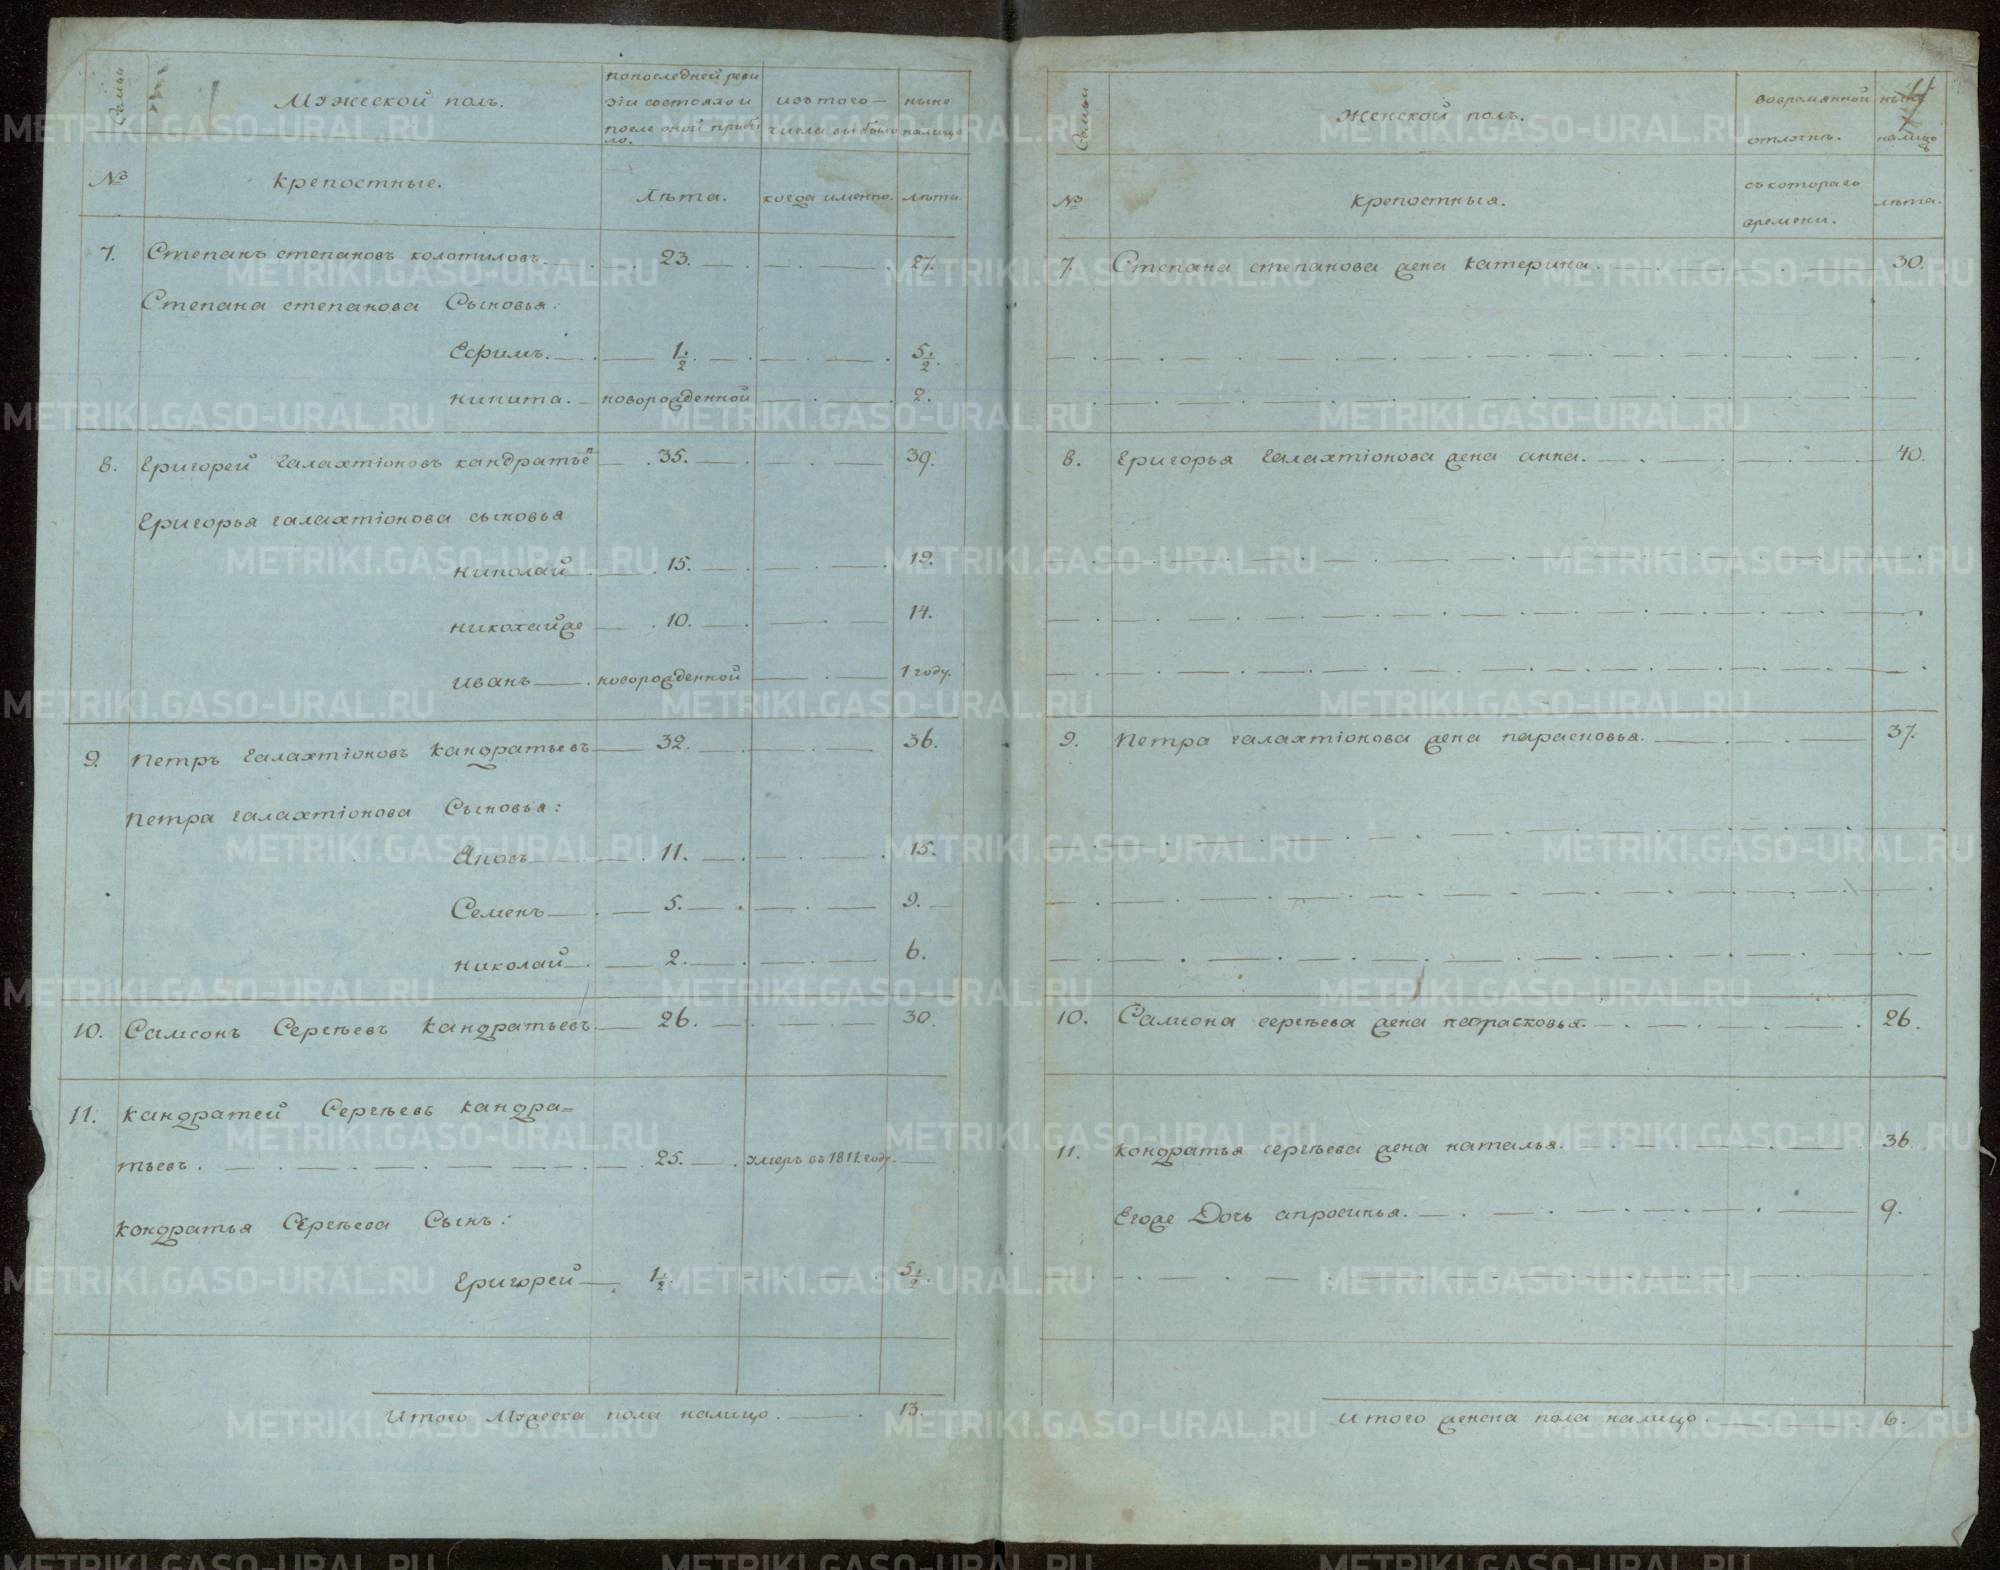 Семьи
Мужеской полъ.
попоследней реви
зiи состояло и
после оной прибы
ло.
изъ того
числа выбыло
ныне
налицо
№
крепостные.
Лѣта.
когда именно.
лѣта.
7. Степанъ степановъ колотиловъ. 23. 27.
Степана степанова Сыновья:
Ефимъ. 1 1/2 5 1/2
никита. новорожденной 2.
8. Григорей Галахтiоновъ кандратье 35. 39.
Григорья галахтiонова сыновья
николай 15. 19.
николайже 10. 14.
иванъ новорожденной 1 году.
9. Петръ Галахтiоновъ Кандратьевъ 32. 36.
Петра галахтiонова Сыновья:
Яковъ 11. 15.
Семенъ 5. 9.
николай 2. 6.
10. Самсонъ Сергѣевъ Кандратьевъ 26. 30.
11. Кандратей Сергѣевъ Кандра=
тьевъ. 25. умеръ въ 1811. году.
Кондратья Сергѣева Сынъ:
Григорей 1 1/2 5 1/2
Итого Мужеска пола налицо. 13.
Семьи
Женской полъ.
вовременной
отлучке.
ныне
налицо
4
№
Крепостныя.
съ котораго
времени.
лѣта.
7. Степана степанова жена катерина. 30.
8. Григорья Галахтiонова жена анна. 40.
9. Петра галахтiонова жена парасковья. 37.
10. Самсона сергѣева жена парасковья. 26.
11. Кондратья сергѣева жена наталья. 36.
Егоже Дочь апросинья. 9.
Итого женска пола налицо. 6.
METRIKI.GASO-URAL.RU